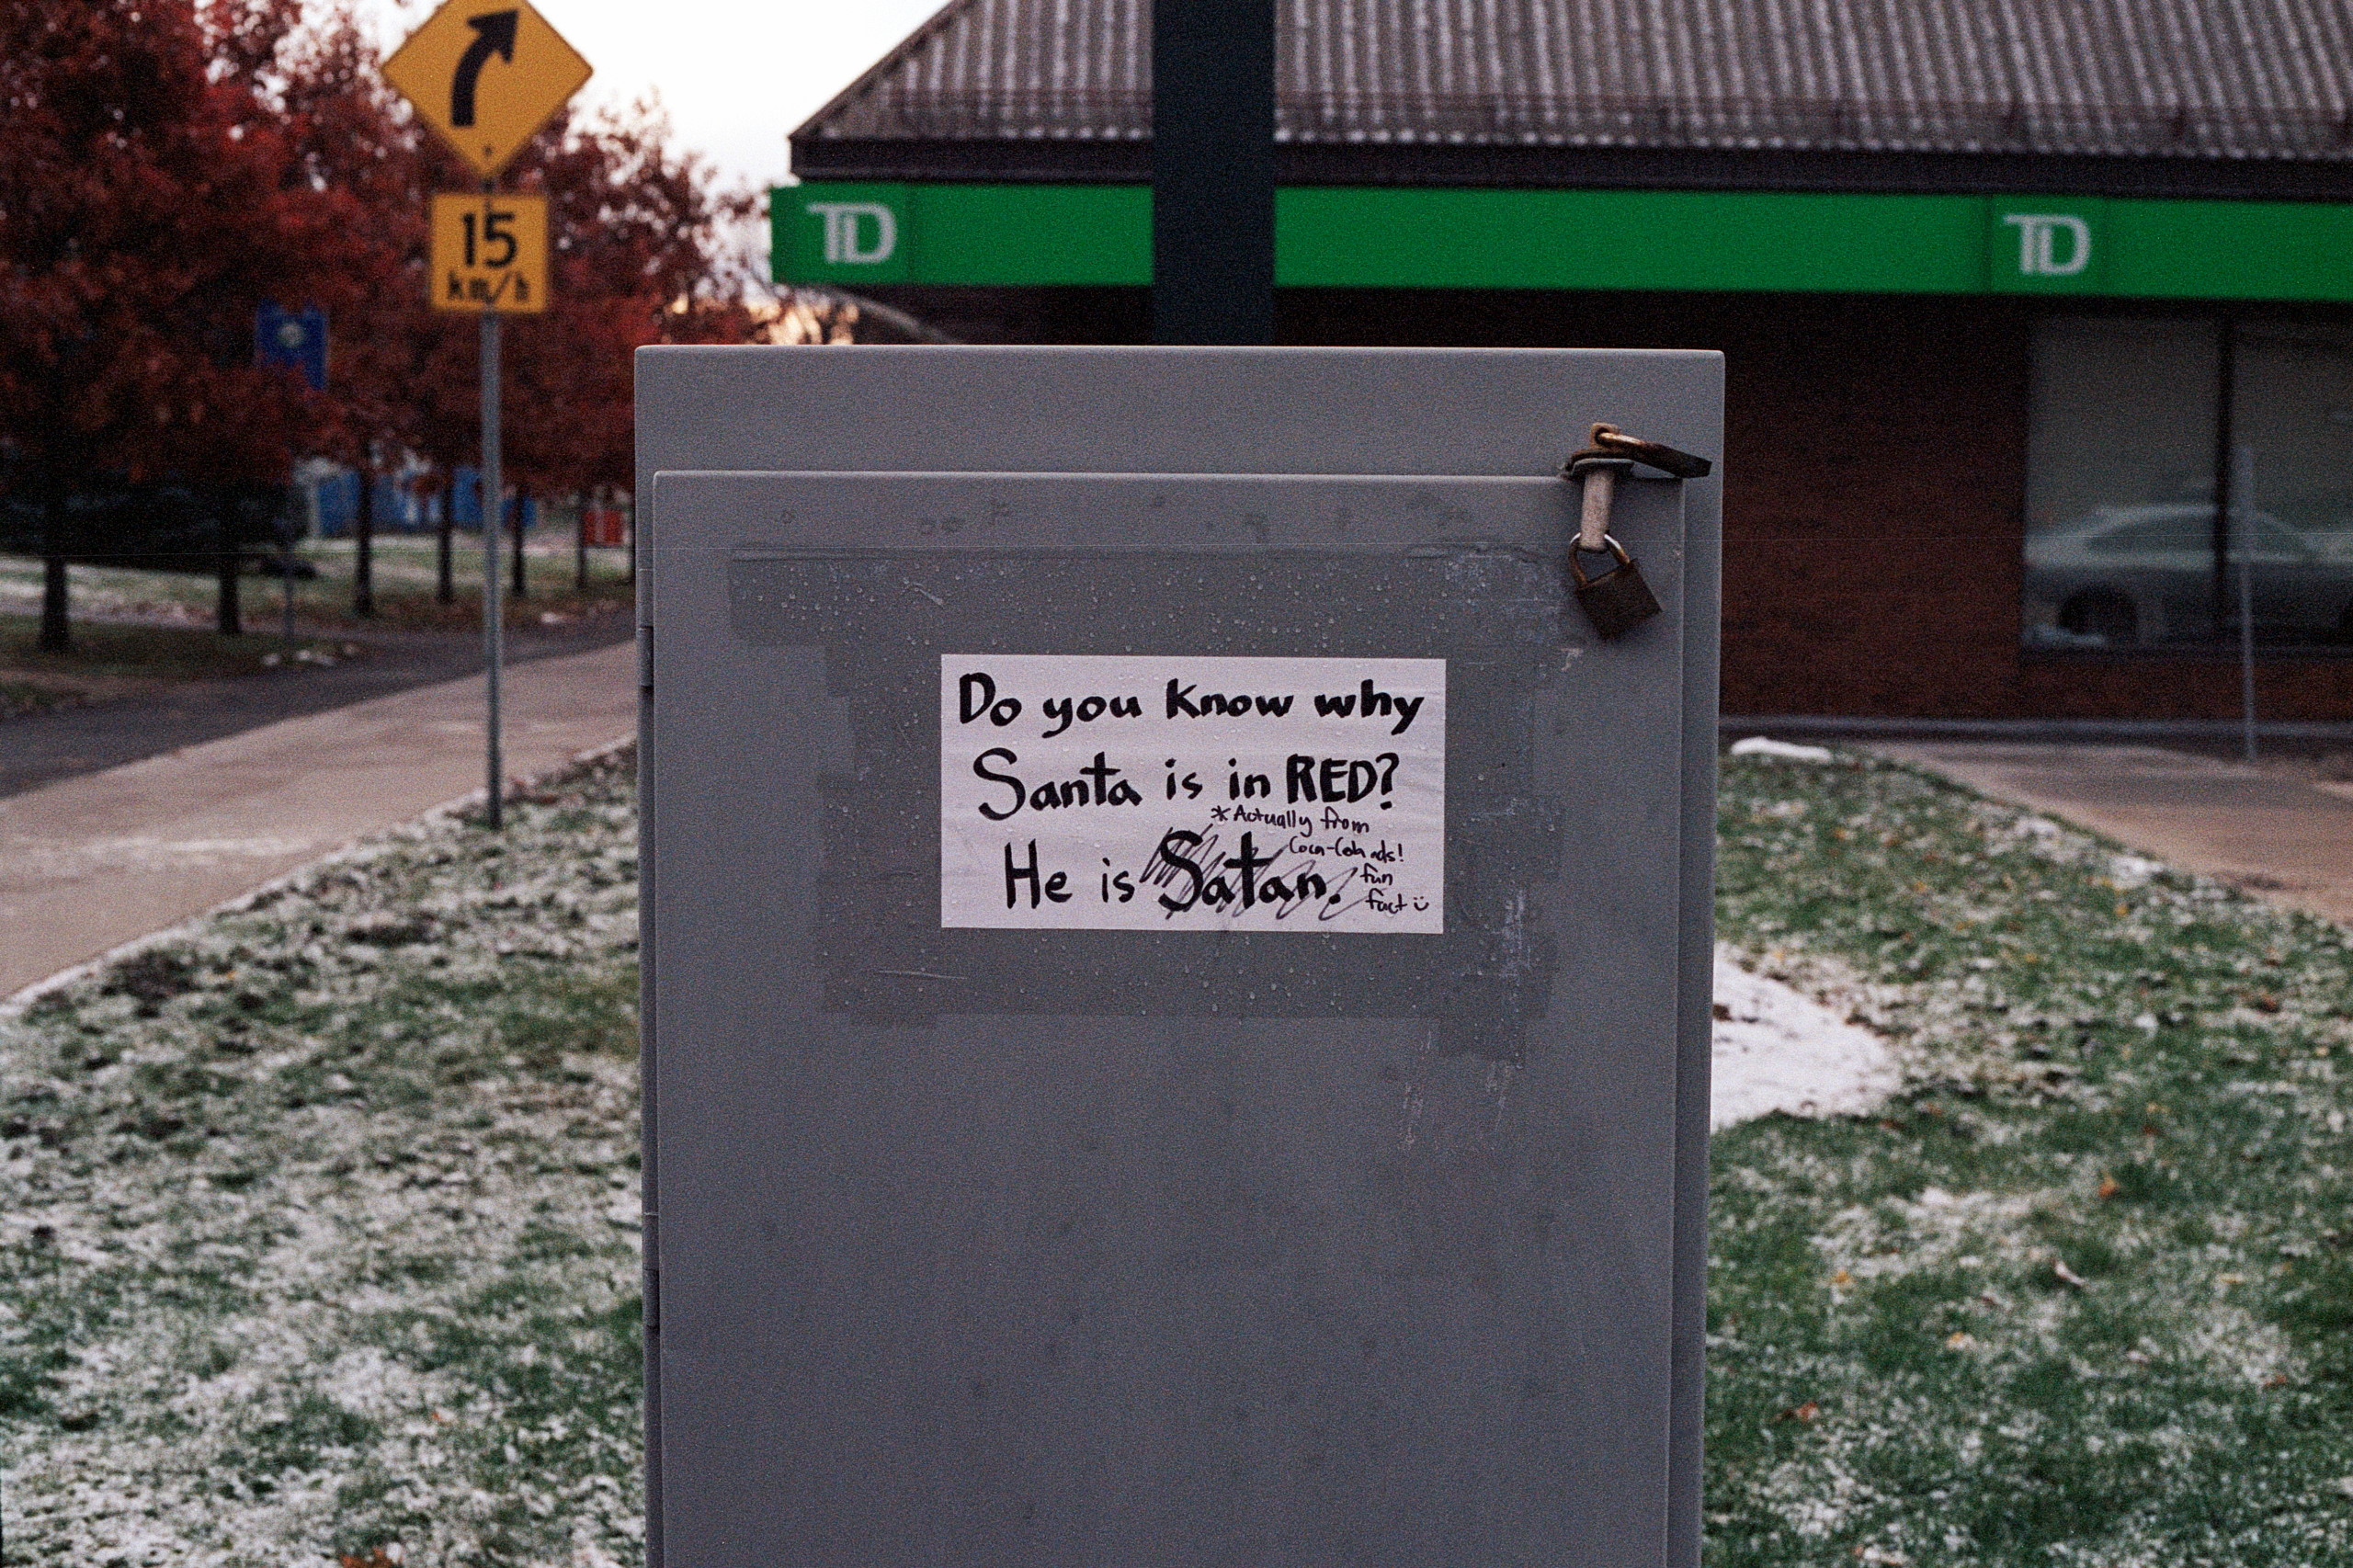 15
km/h
TD
TD
Do you know why
Santa is in RED?
*Actually from
Coca-Cola ads!
He is Satan.
fun
fact ü